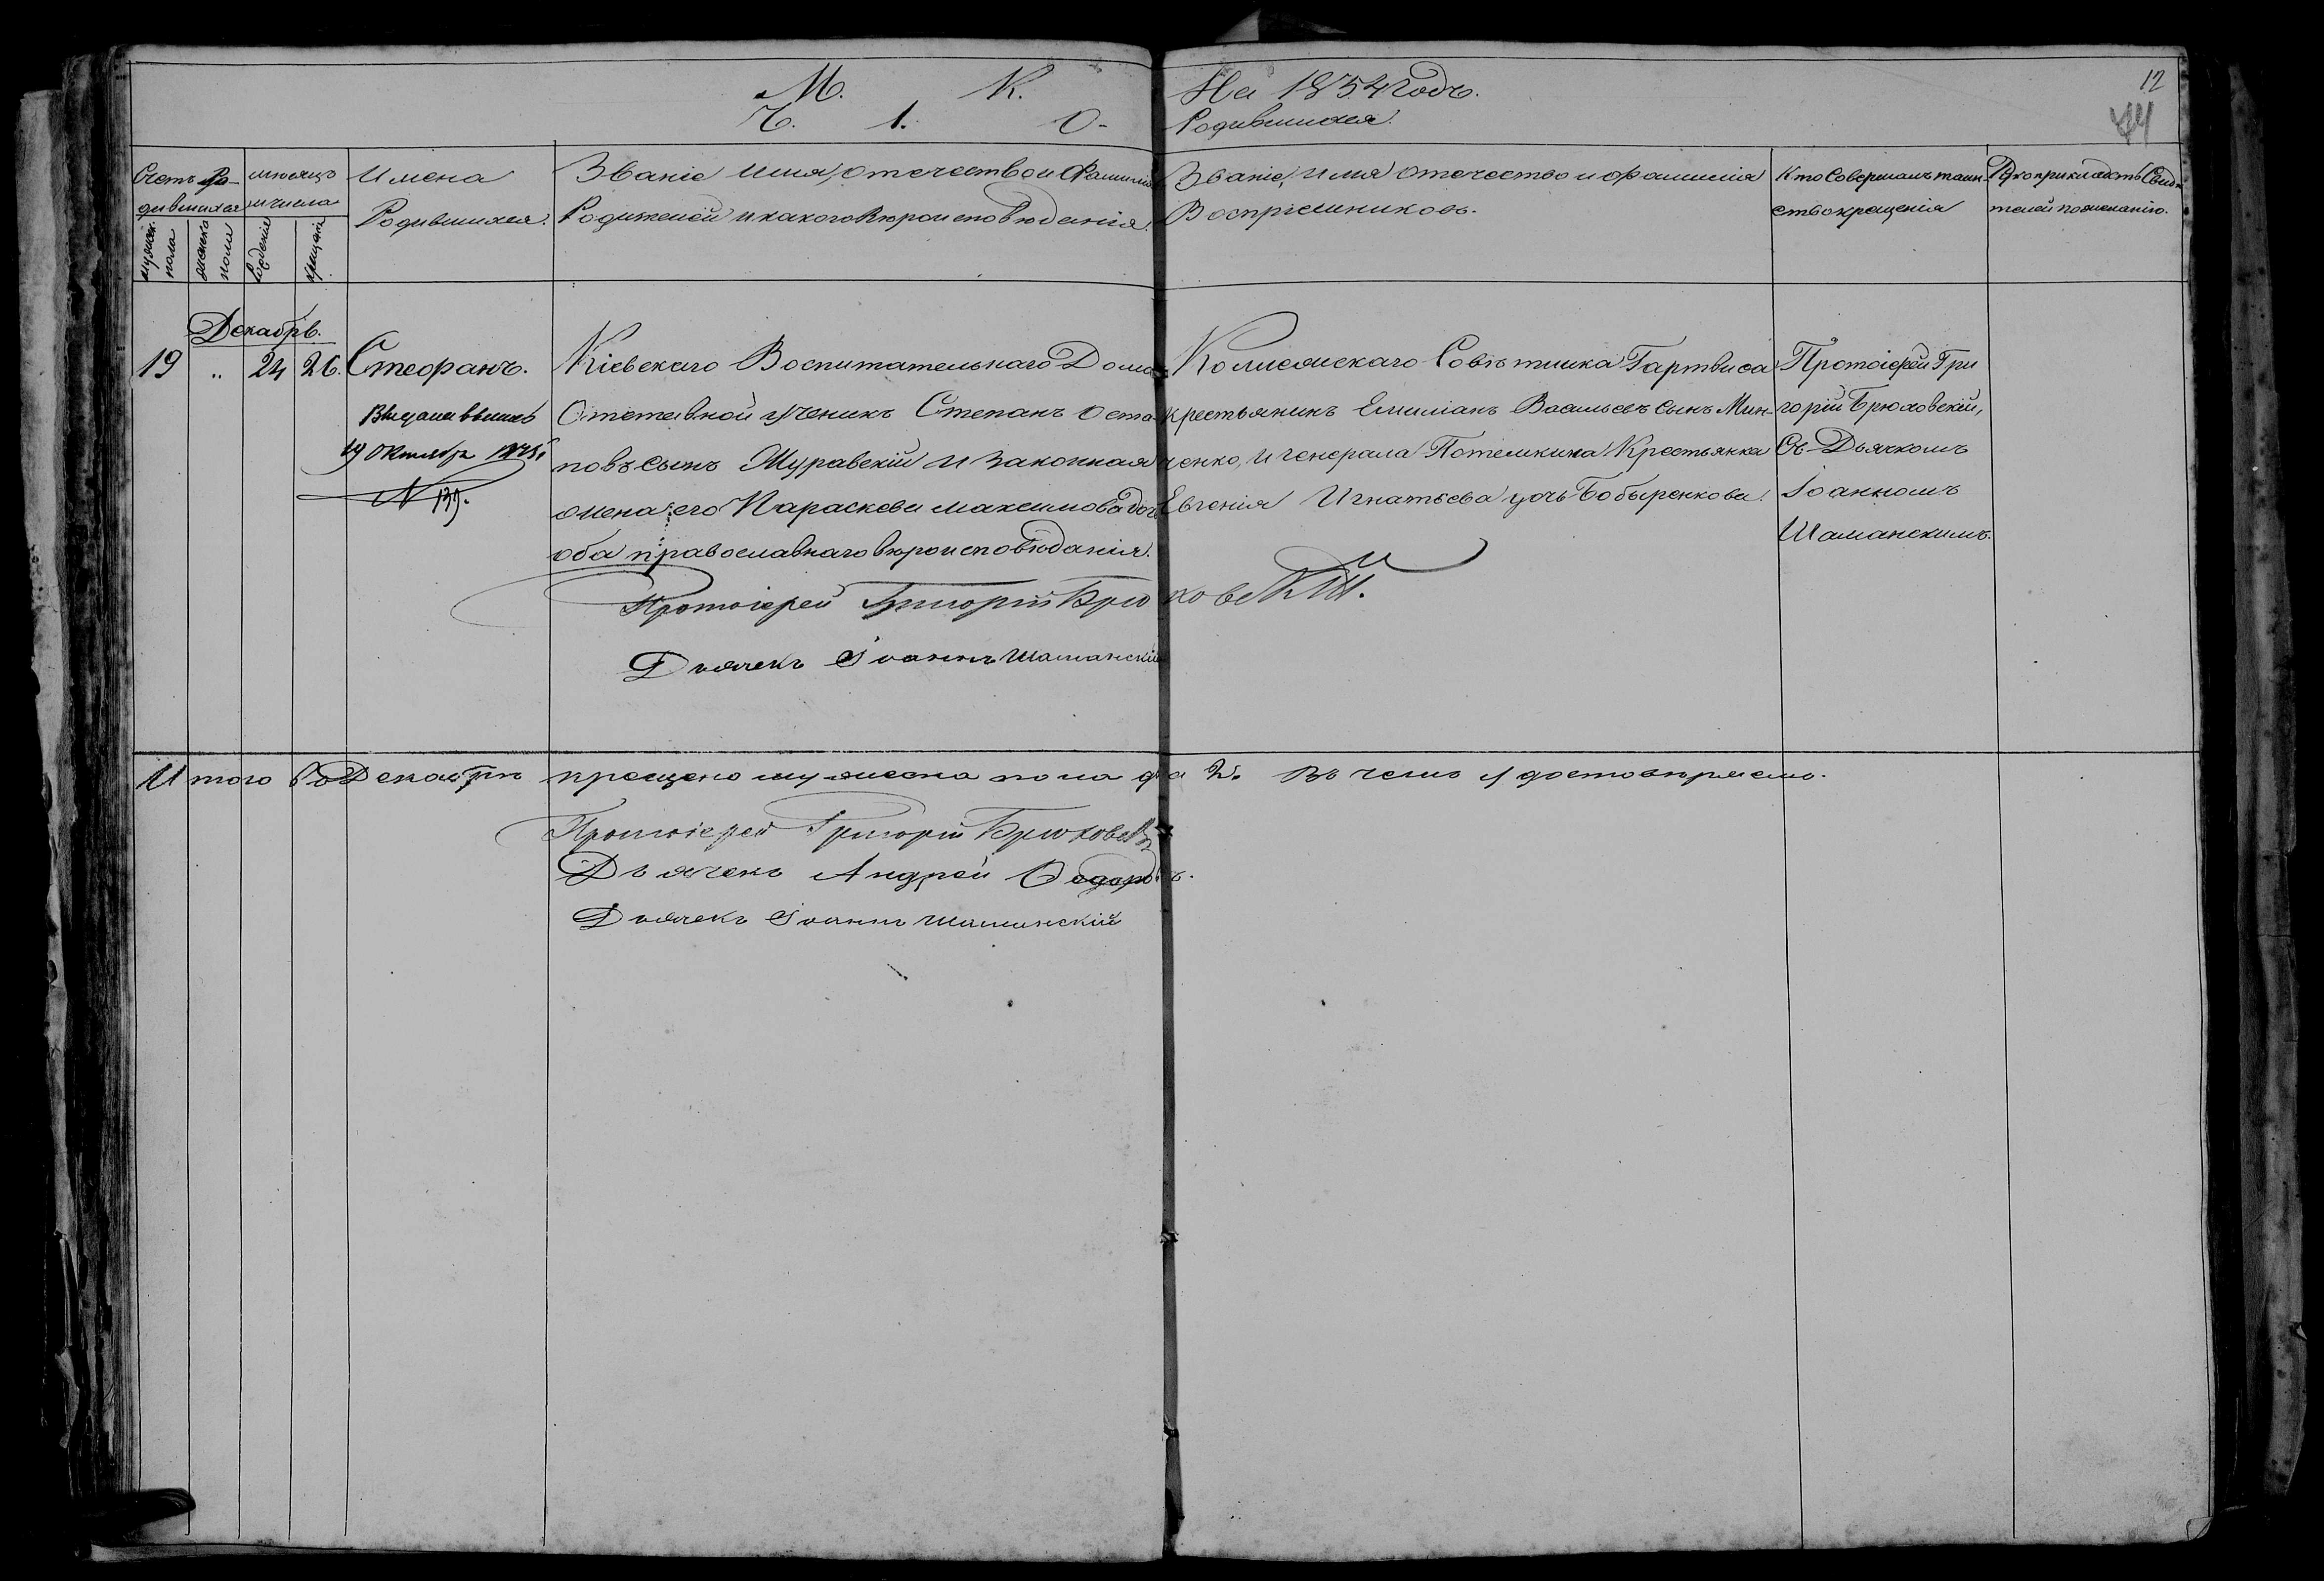 М. К. На 1854 Годъ.
Ч. 1. О- Родившихся.
12
44
Счетъ Ро-
дившихся
мужеск. пола
женска пола
мѣсяцъ
и числа
Рожденіе
Крещеніе
Имена
Родившихся.
Званіе имя, отечество и Фамилія
Родителей и какого Вѣроисповѣданія.
Званіе, имя отечество и фамилія
Воспріемниковъ.
Кто Совершалъ таин-
ство крещенія
Рукоприкладство Свидѣ
телей по желанію.
Декабрь.
19 „ 24 26. Стефанъ.
19 Октября
N 139.
Кіевскаго Воспитательнаго Дома
Отставной Ученикъ Степанъ Оста-
повъ сынъ Журавскій и законная
жена его Параскева Максимова дочь
оба православнаго вѣроисповѣданія.
Колисжскаго Совѣтника Гартвиса
крестьянинъ Емиліанъ Васильевъ сынъ Мин-
ченко, и генерала Потемкина Крестьянка
Евгенія Игнатьева дочь Бобыренкова.
Протоіерей Гри
горій Брюховскій,
Съ Дьячкомъ
Іоанномъ
Шаманскимъ.
Протоіерей Григорій Брюховскій.
Дьячекъ Іоаннъ Шаманскій
Итого въ Декабрѣ крещено мужеска пола два 2. Въ чемъ и достовѣряемъ.
Протоіерей Григорій Брюховскій
Дьячекъ Андрей Ѳедоровъ.
Дьячекъ Іоаннъ Шаманскій